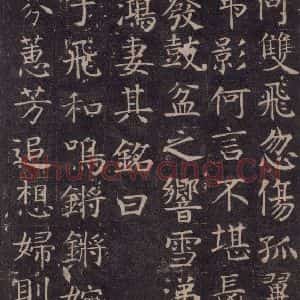 向雙飛忽傷孤翼
吊影何言不堪長
發鼓盆之響雪涕
鴻妻其銘曰
于飛和鳴鏘鏘婉
芬蕙芳追想婦則
Shufawang.Cn